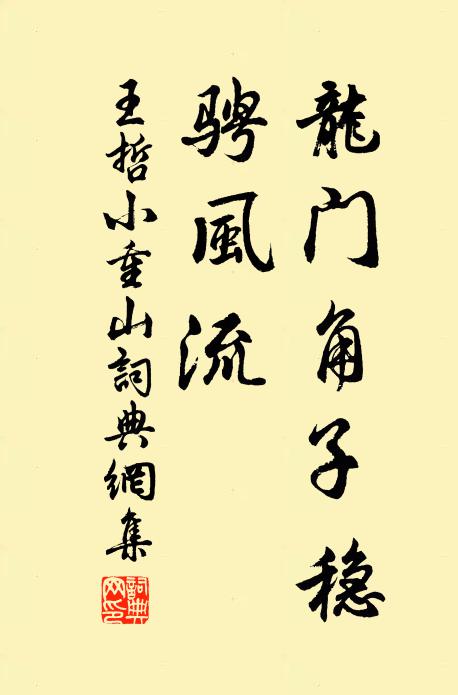 龍门角子稳
骋風流
王哲小重山詞典網集
詞典网印